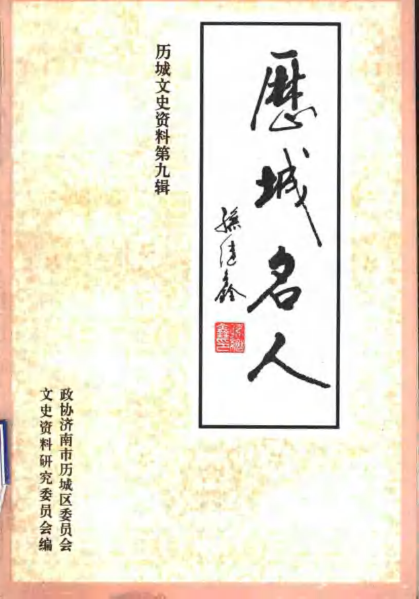 歷城名人
孫建鑫
历城文史资料第九辑
政协济南市历城区委员会
文史资料研究委员会编